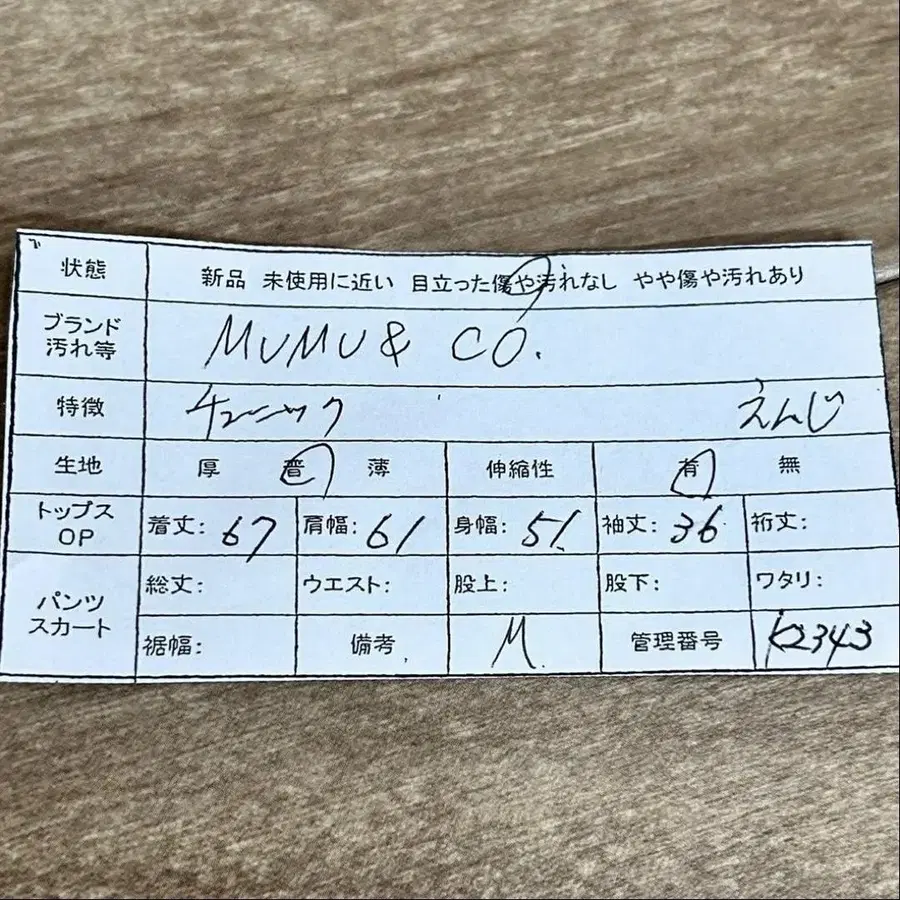 状態 新品 未使用に近い 目立った傷や汚れなし やや傷や汚れあり
ブランド
汚れ等 MUMU & CO.
特徴 チュニック えんじ
生地 厚 普 薄 伸縮性 有 無
トップス
OP 着丈: 67 肩幅: 61 身幅: 51 袖丈: 36 裄丈:
パンツ
スカート 総丈: ウエスト: 股上: 股下: ワタリ:
裾幅: 備考 M 管理番号 K2343